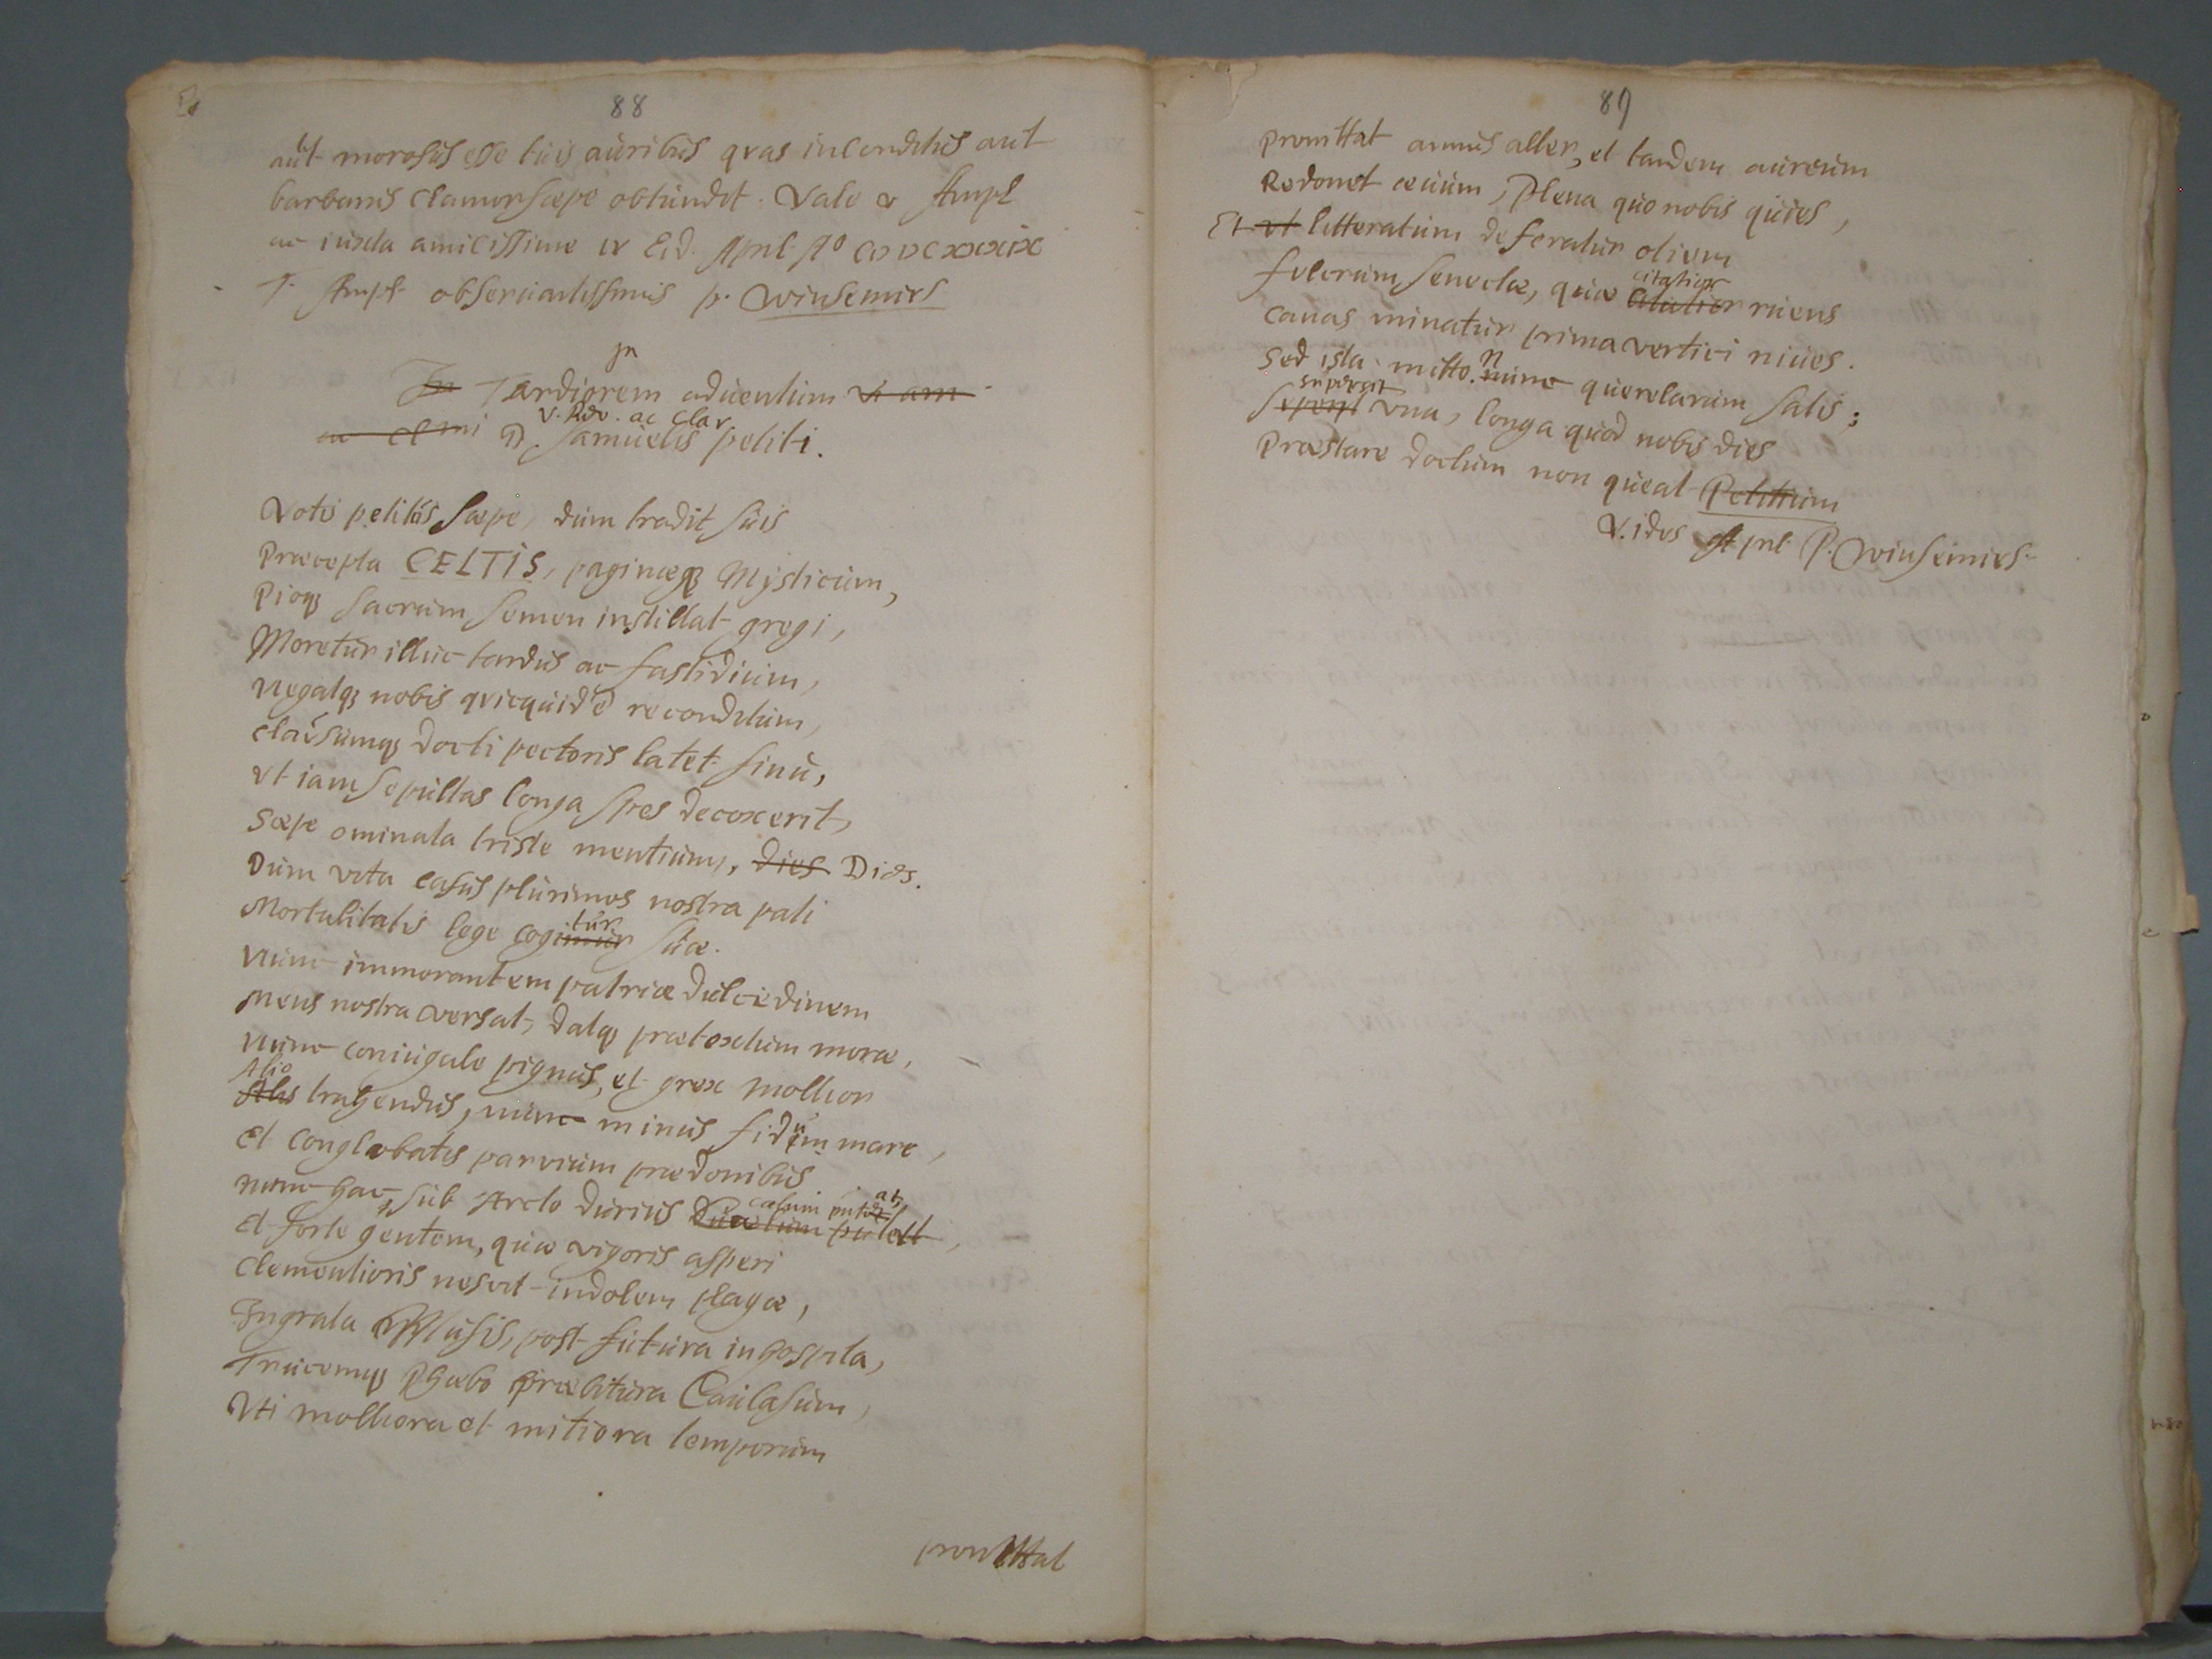 88
aut morosus esse tuis auribus qvas inconditus aut
barbarus clamor sæpe obtundit. Vale v Ampl
ac iuxta amicissime IX Eid. April. Aº
T. Ampl. observantissimus p. Winsemivs
In Tardiorem aduentum V. am
in
ac Cl mi D. Samuelis petiti.
V. Rev. ac Clar.
Votis petitus sæpe, dum tradit suis
Præcepta CELTIS, paginæq3 Mysticum,
Pioq3 sacrum semen instillat gregi,
Moretur illuc tardus ac fastidium,
Negatq3 nobis qvicquid e reconditum,
Clausumq3 docti pectoris latet sinu,
Vt iam sepultas longa spes decoxerit,
Sæpe ominata triste mentium, dies Dies.
Dum vita casus plurimos nostra pati
Mortalitatis lege cogimur suæ.
tur
Nunc immorantem patriæ dulcedinem
Mens nostra versat, datq3 prætextum moræ,
Nunc coniugale pignus, et grex mollior
Alio
Alis trahendus, nunc minus fidum mare,
Et conglobatis parvium prædonibus
Nunc hac, sub Arcto durius
cælum putat,
Et forte gentem, quæ vigoris asperi
Clementioris nescit indolem plagæ,
Ingrata Musis, post futura inhospita,
Trucemq3 Phœbo præbitura Caucasum,
Vti molliora et mitiora temporum
promittat
89
Promittat annus alter, et tandem aureum
Redonet æuum, Plena quo nobis quies,
Et vt litteratum deferatur otium
Fulcrum senectæ, quæ citatior ruens
citatior
Canas minatur prima vertici niues.
Sed ista mitto. Nunc querelarum satis;
supersit
vna, longa quod nobis dies
Præstare doctum non queat Petitium
V. idvs April P. Winsemivs